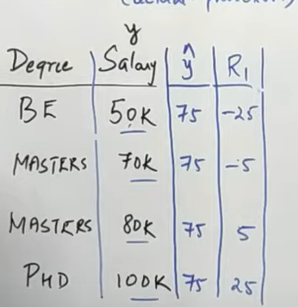 y
Degree Salary ŷ R₁
BE 50K 75 -25
MASTERS 70K 75 -5
MASTERS 80K 75 5
PHD 100K 75 25